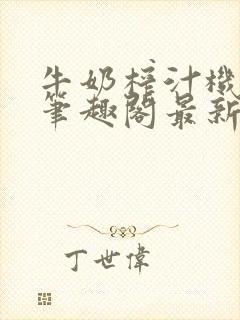 牛奶榨汁機
筆趣閣最新
丁世偉